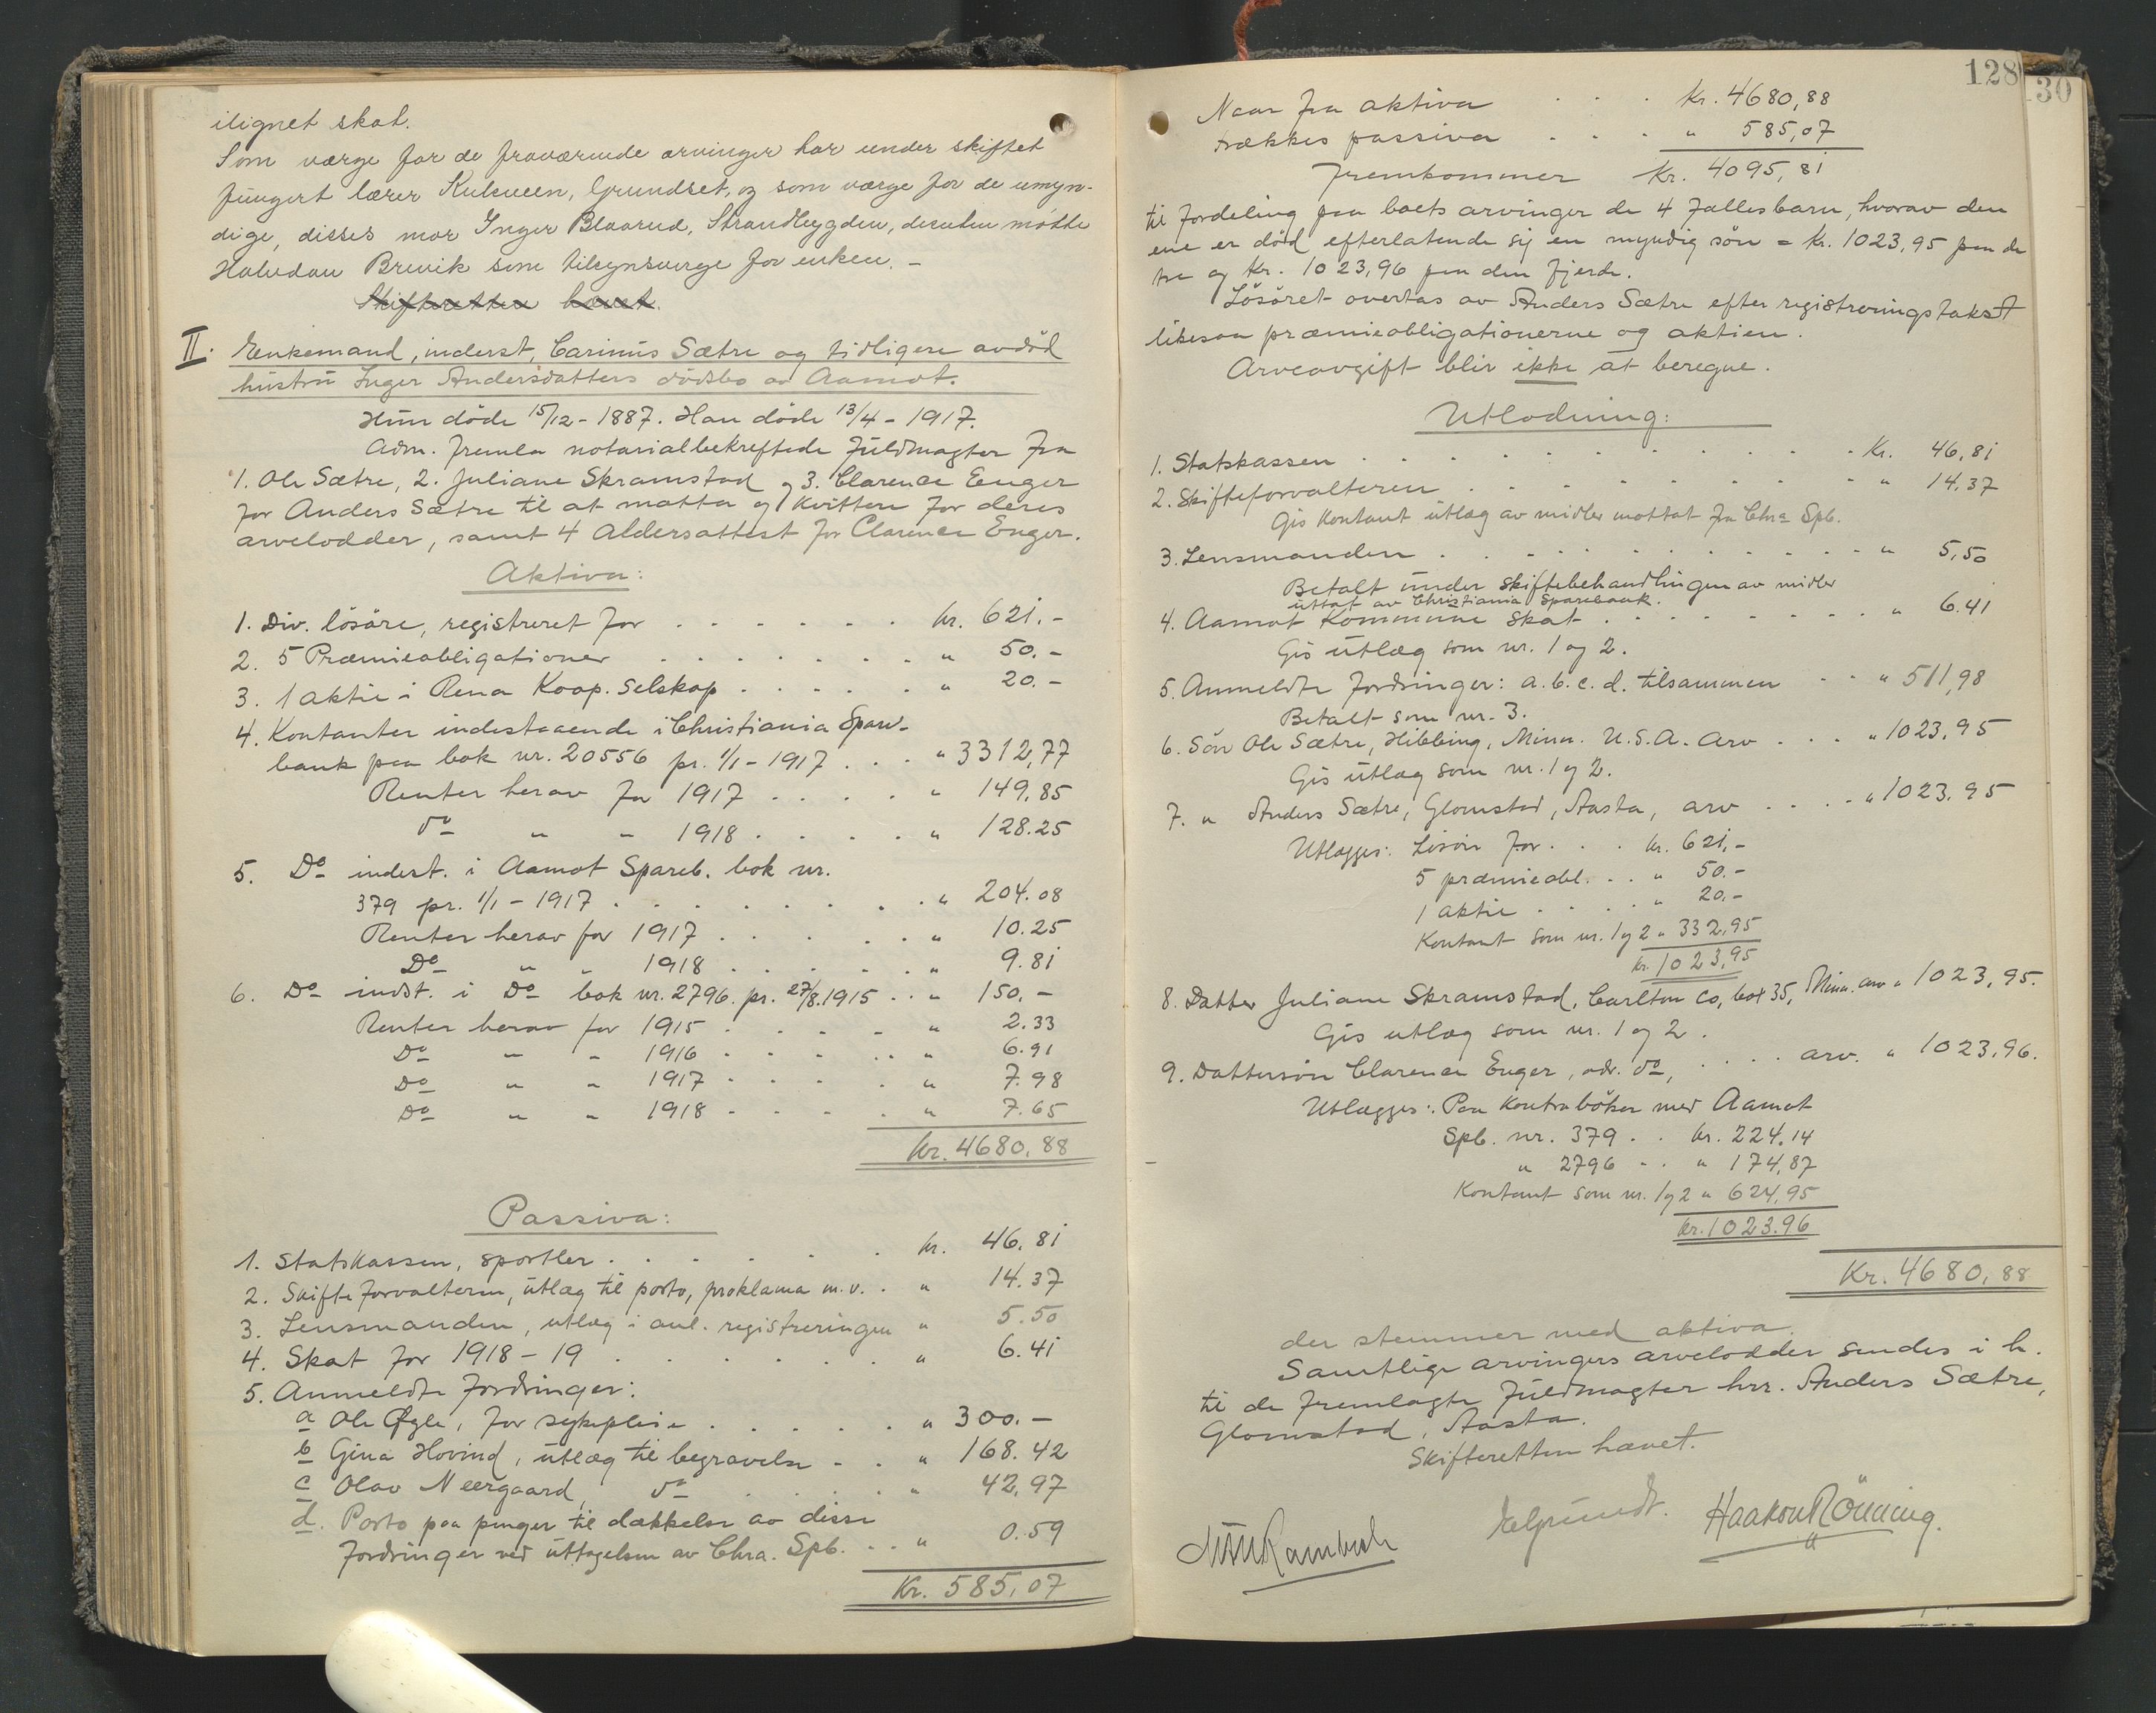 ilignet skat.
Som værge for de fraværende arvinger har under skiftet
fungert lærer Kukveen, Grundset, og som værge for de umyn-
dige, disses mor Inger Blaarud, Strandbygden, desuten møtte
Halvdan Brevik som tilsynsværge for enken. -
Skifteretten hævet.
II. Enkemand, inderst, Carinus Sætre og tidligere avdöd
hustru Inger Andersdatters dödsbo av Aamot.
Hun döde 15/12 - 1887. Han döde 13/4 - 1917.
Adm. fremla notarialbekreftede fuldmagter fra
1. Ole Sætre, 2. Juliane Skramstad og 3. Clarence Enger
for Anders Sætre til at motta og kvittere for deres
arvelodder, samt 4 Aldersattest for Clarence Enger.
Aktiva:
1. Div. lösöre, registreret for . . . . . . kr. 621.-
2. 5 Præmieobligationer . . . . . . . " 50.-
3. 1 aktie i Rena Koop. Selskap . . . . . " 20.-
4. Kontanter indestaaende i Christiania Spare-
bank paa bok nr. 20556 pr. 1/1 - 1917 . . . " 3312,77
Renter herav for 1917 . . . . " 149,85
do " " 1918 . . . . " 128.25
5. Do indest. i Aamot Spareb. bok nr.
379 pr. 1/1 - 1917 . . . . . . . . " 204.08
Renter herav for 1917 . . . . . " 10.25
Do " " 1918 . . . . . " 9.81
6. Do indst. i Do bok nr. 2796. pr. 27/8.1915 . . " 150,-
Renter herav for 1915 . . . . " 2.33
Do " " 1916 . . . . . " 6.91
Do " " 1917 . . . . " 7.98
Do " " 1918 . . . . " 7.65
Kr. 4680,88
Passiva:
1. Statskassen, sportler . . . . . . kr. 46,81
2. Skifteforvalteren, utlæg til porto, proklama m.v. . " 14.37
3. Lensmanden, utlæg i anl. registreringen " 5.50
4. Skat for 1918-19 . . . . . . . " 6.41
5. Anmeldte fordringer:
a Ole Øgle, for sykepleie . . . . . " 300.-
b Gina Hovind, utlæg til begravelse . . " 168.42
c Olav Neergaard, do . . . . " 42,97
d. Porto paa penger til dækkelse av disse
fordringer ved uttagelsen av Chra. Spb. . . " 0.59
Kr. 585,07
128
30
Naar fra aktiva . . . Kr. 4680,88
trækkes passiva . . . . " 585,07
fremkommer Kr. 4095,81
til fordeling paa boets arvinger de 4 fællesbarn, hvorav den
ene er död efterlatende sig en myndig sön = Kr. 1023,95 paa de
tre og Kr. 1023,96 paa den fjerde.
Lösöret overtas av Anders Sætre efter registreringstakst
likesaa præmieobligationerne og aktien.
Arveavgift blir ikke at beregne.
Utlodning:
1. Statskassen . . . . . . . . . Kr. 46,81
2. Skifteforvalteren . . . . . . . . " 14.37
Gis kontant utlæg av midler mottat fra Chra Spb.
3. Lensmanden . . . . . . . . . . " 5,50
Betalt under skiftebehandlingen av midler
uttat av Christiania Sparebank.
4. Aamot Kommune skat . . . . . . . " 6.41
Gis utlæg som nr. 1 og 2.
5. Anmeldte fordringer: a.b.c.d. tilsammen . . " 511,98
Betalt som nr. 3.
6. Sön Ole Sætre, Hibbing, Minn. U.S.A. arv . . . " 1023,95
Gis utlæg som nr. 1 og 2.
7. " Anders Sætre, Glomstad, Aasta, arv . . . . " 1023,95
Utlægges: Lösöre for . . . kr. 621,-
5 præmieobl. . . " 50.-
1 aktie . . . . " 20,-
Kontant som nr. 1 og 2 " 332,95
kr. 1023,95
8. Datter Juliane Skramstad, Carlton Co, box 35, Minn. arv " 1023,95.
Gis utlæg som nr. 1 og 2.
9. Dattersön Clarence Enger, adr. do, . . . . arv. " 1023,96.
Utlægges: Paa kontraböker med Aamot
Spb. nr. 379 . . kr. 224.14
" 2796 . . " 174,87
Kontant som nr. 1 og 2 " 624,95
kr. 1023.96
Kr. 4680,88
der stemmer med aktiva.
Samtlige arvingers arvelodder sendes i h.
til de fremlagte fuldmagter hrr. Anders Sætre,
Glomstad, Aasta.
Skifteretten hævet.
Haakon Rönning.